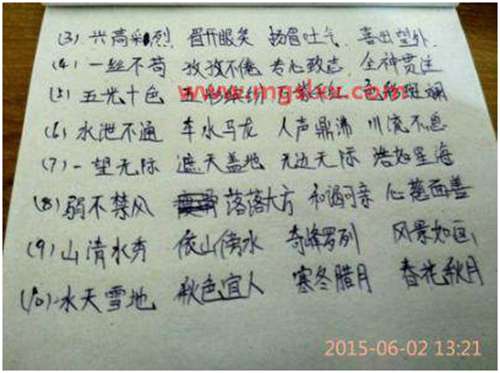 (3) 兴高彩烈 眉开眼笑 扬眉吐气 喜出望外
(4) 一丝不苟 孜孜不倦 专心致志 全神贯注
(5) 五光十色
(6) 水泄不通 车水马龙 人声鼎沸 川流不息
(7) 一望无际 遮天盖地 无边无际 浩如星海
(8) 弱不禁风 落落大方 和谒可亲 心慈面善
(9) 山清水秀 依山傍水 奇峰罗列 风景如画
(10) 水天雪地 秋色宜人 寒冬腊月 春花秋月
2015-06-02 13:21